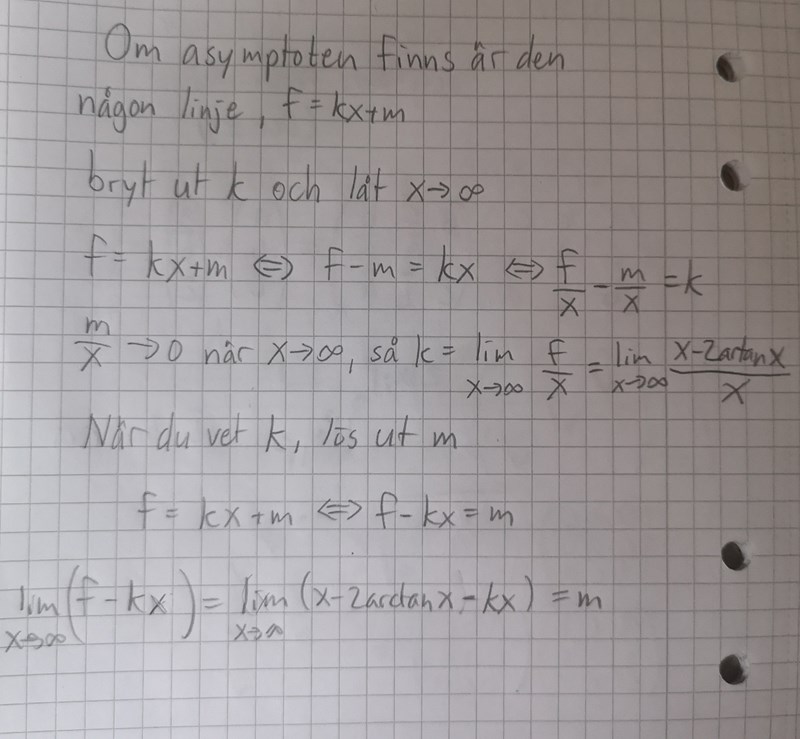 Om asymptoten finns är den
någon linje, f = kx+m
bryt ut k och låt x→∞
f = kx+m ⇔ f-m = kx ⇔ f/x - m/x = k
m/x → 0 när x→∞, så k = lim x→∞ f/x = lim x→∞ (x-2artanx)/x
När du vet k, lös ut m
f = kx+m ⇔ f-kx = m
lim x→∞ (f-kx) = lim x→∞ (x-2arctanx-kx) = m